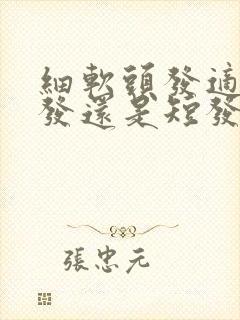 細軟頭發適
發還是短發
張忠元